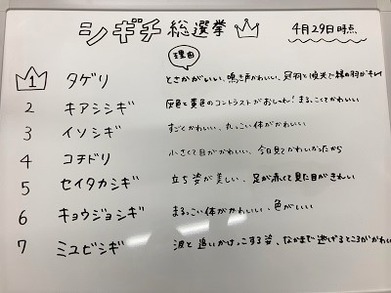 シギチ総選挙
4月29日時点
理由
1 タゲリ とさかがいい、鳴き声かわいい、冠羽と後光で緑の羽がキレイ
2 キアシシギ 灰色と黄色のコントラストがおしゃれ! まるっこくてかわいい
3 イソシギ すごくかわいい、丸っこい体がかわいい
4 コチドリ 小さくて目がかわいい、今日見てかわいかったから
5 セイタカシギ 立ち姿が美しい、足が赤くて見た目がきれい
6 キョウジョシギ まるっこい体がかわいい、色がいい
7 ミユビシギ 波と追いかけっこする姿、なかまで逃げるところがかわいい